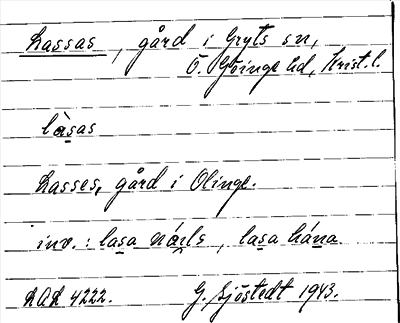 Lassas, gård i Gryts sn,
Ö. Göinge hd, Krist. l.
là̱sas
Lasses, gård i Olinge.
inv.: lasa náils, lasa hána.
LAL 4222. G. Sjöstedt 1943.